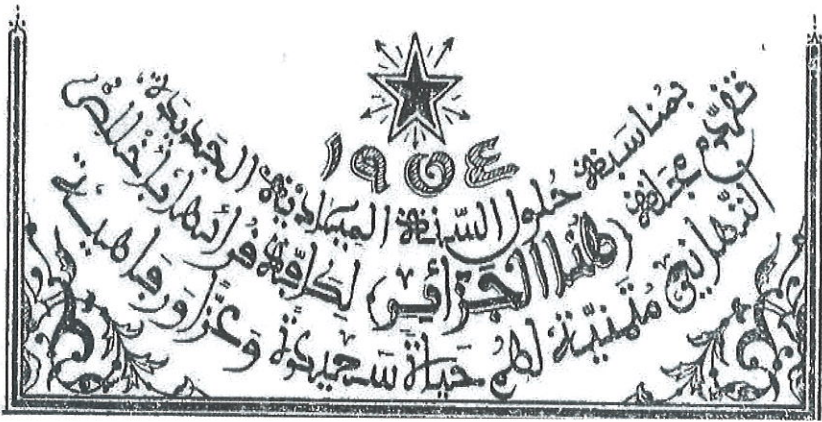 ١٩٥٤
بمُناسَبة حُلول السّنة الميلادية الجديدة،
تقدّم مجلة هنا الجَزائر لكافّة قُرائها بأخلص
التهاني مُتمنيّة لهُم حياة سَعيدة وَعزًّا وَرفاهية